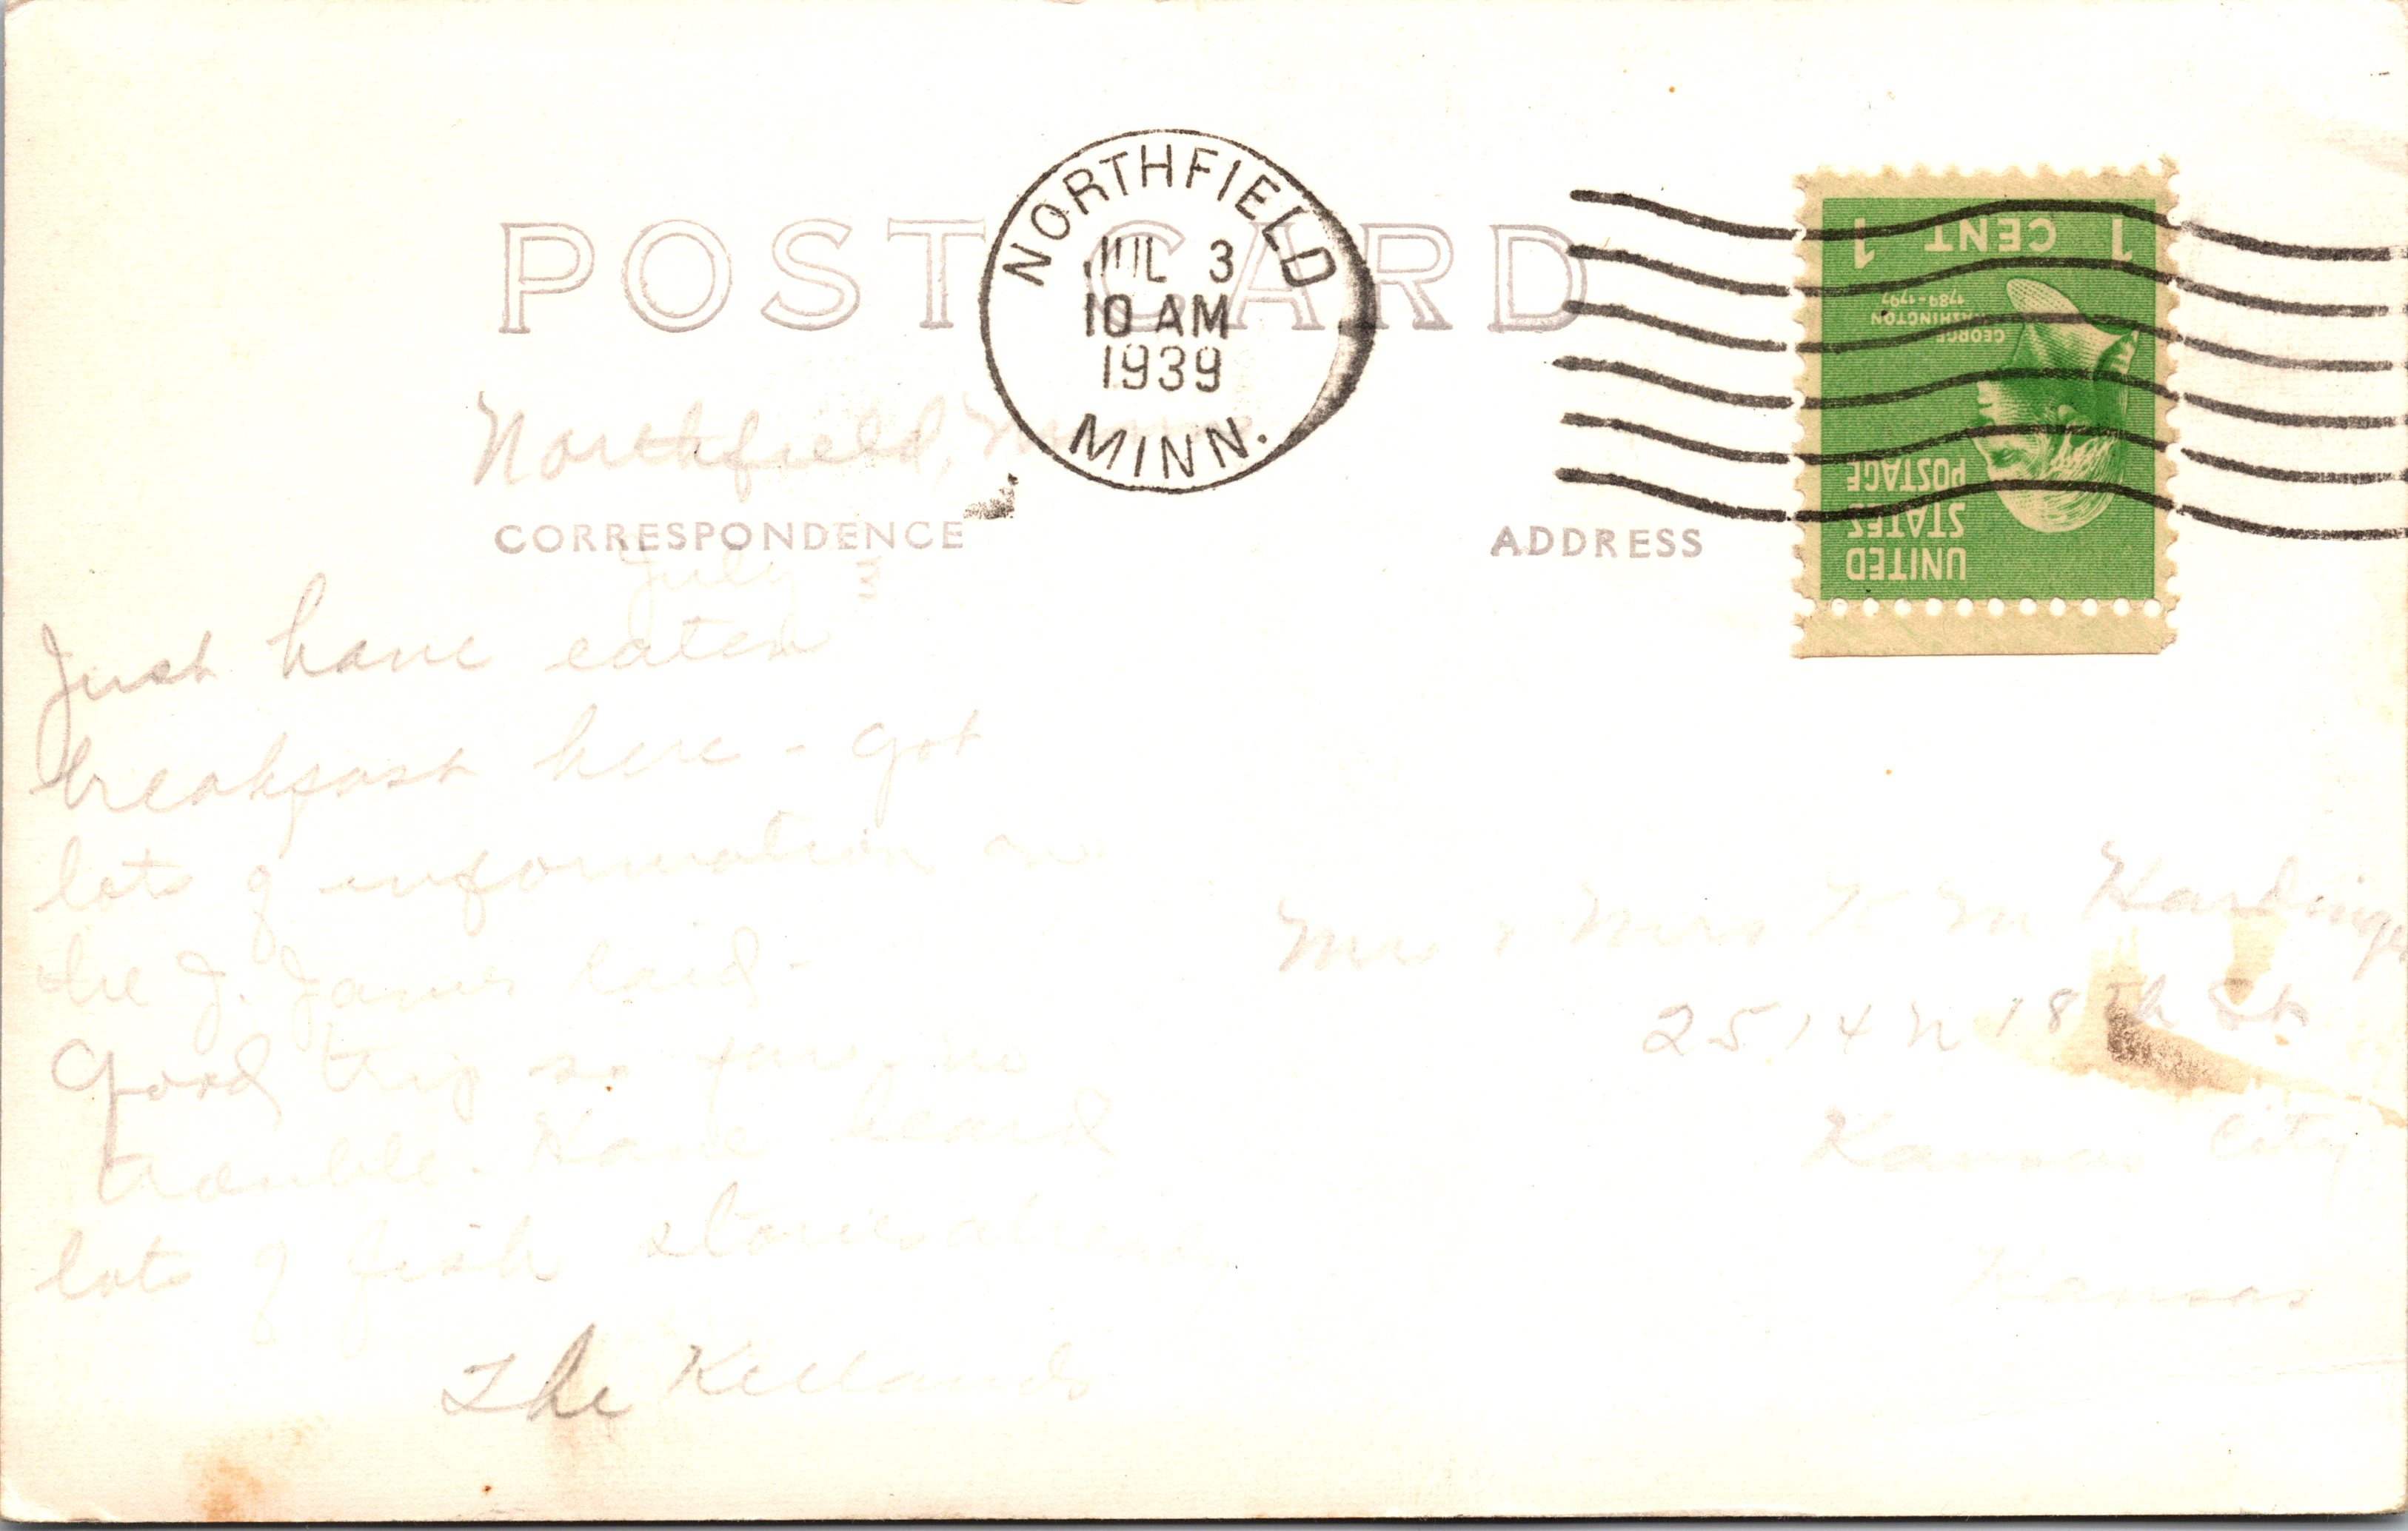 POST CARD
NORTHFIELD
JUL 3
10 AM
1939
MINN.
1 CENT 1
GEORGE
WASHINGTON
1789-1797
UNITED
STATES
POSTAGE
Northfield, Minn
CORRESPONDENCE
ADDRESS
July 3
Just have eaten
breakfast here - got
lots of information on
the J. James Raid -
Good trip so far no
trouble. Have heard
lots of fish stories already
The
Mr & Mrs M
2514 N 18th St
Kansas City
Kansas